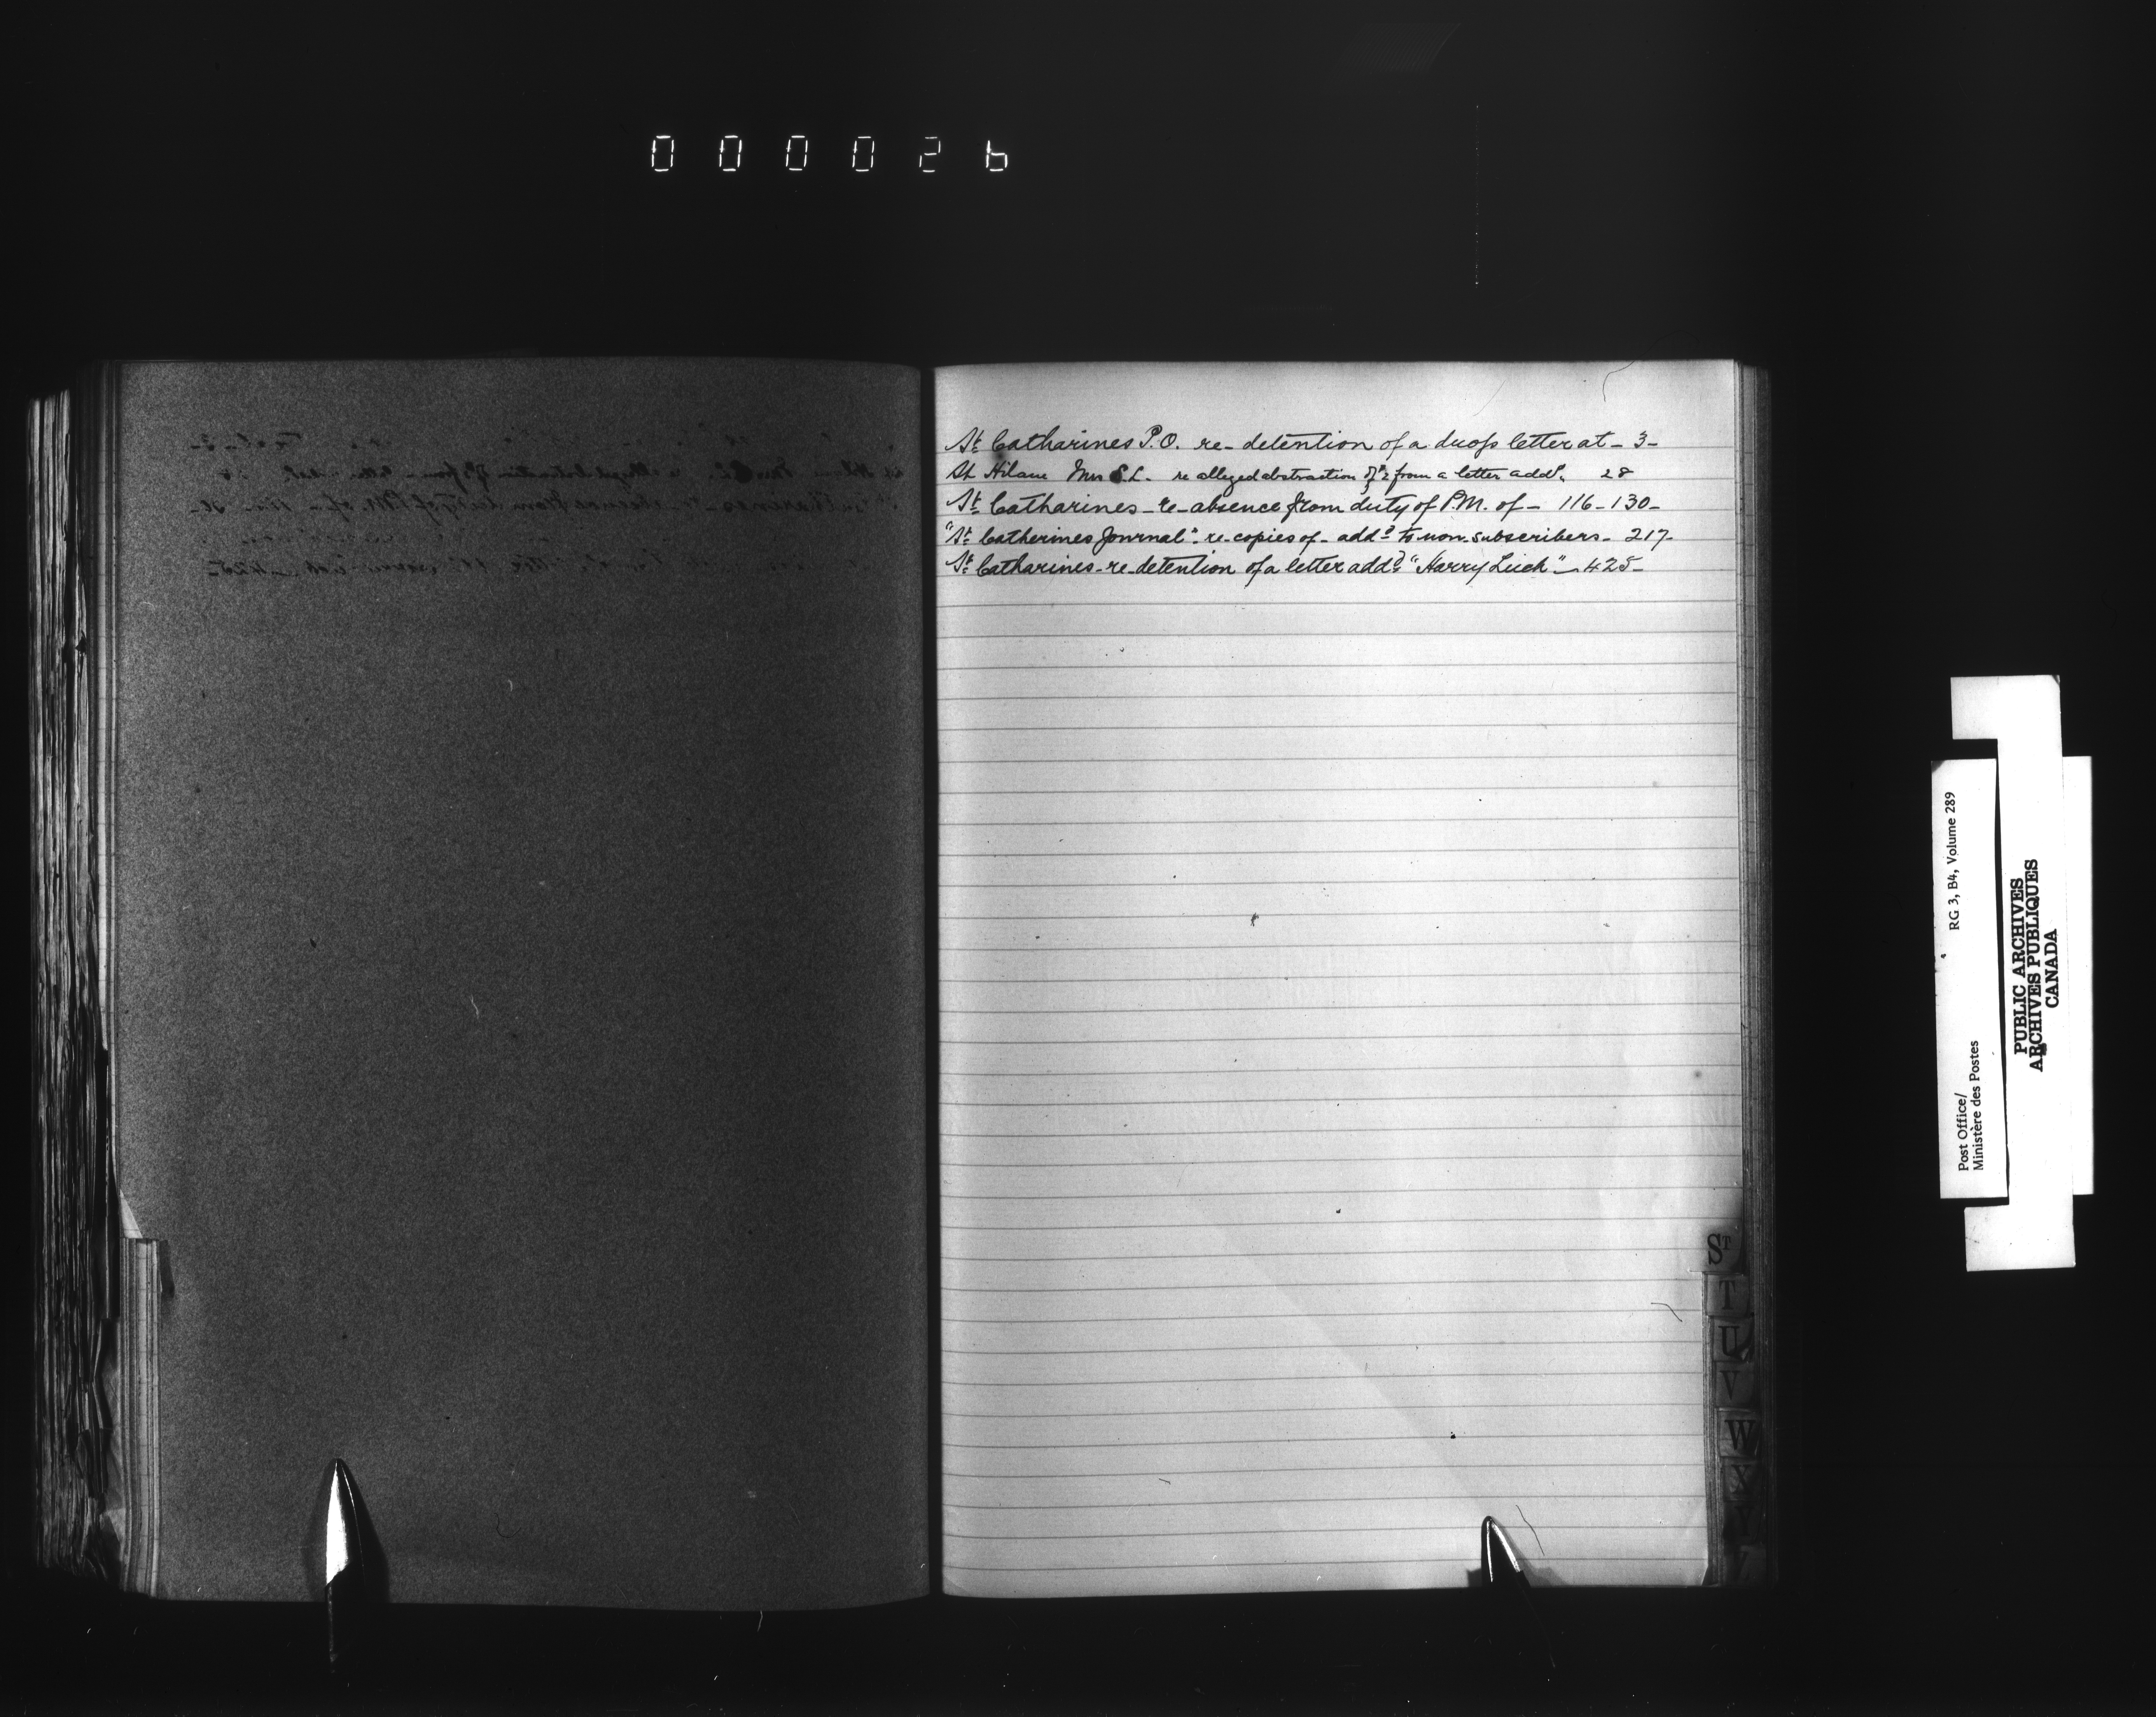 000026
St Catharines P.O. re- detention of a drop letter at - 3-
St Hilaire Mrs S.L. - re alleged abstraction of $2 from a letter addd. 28
St Catharines - re- absence from duty of P.M. of - 116-130-
"St Catherines Journal" - re copies of - addd to non-subscribers - 217-
St Catharines - re detention of a letter addd "Harry Leich" - 425-
ST
T
U
V
W
X
Y
Post Office/ RG 3, B4, Volume 289
Ministère des Postes
PUBLIC ARCHIVES
ARCHIVES PUBLIQUES
CANADA